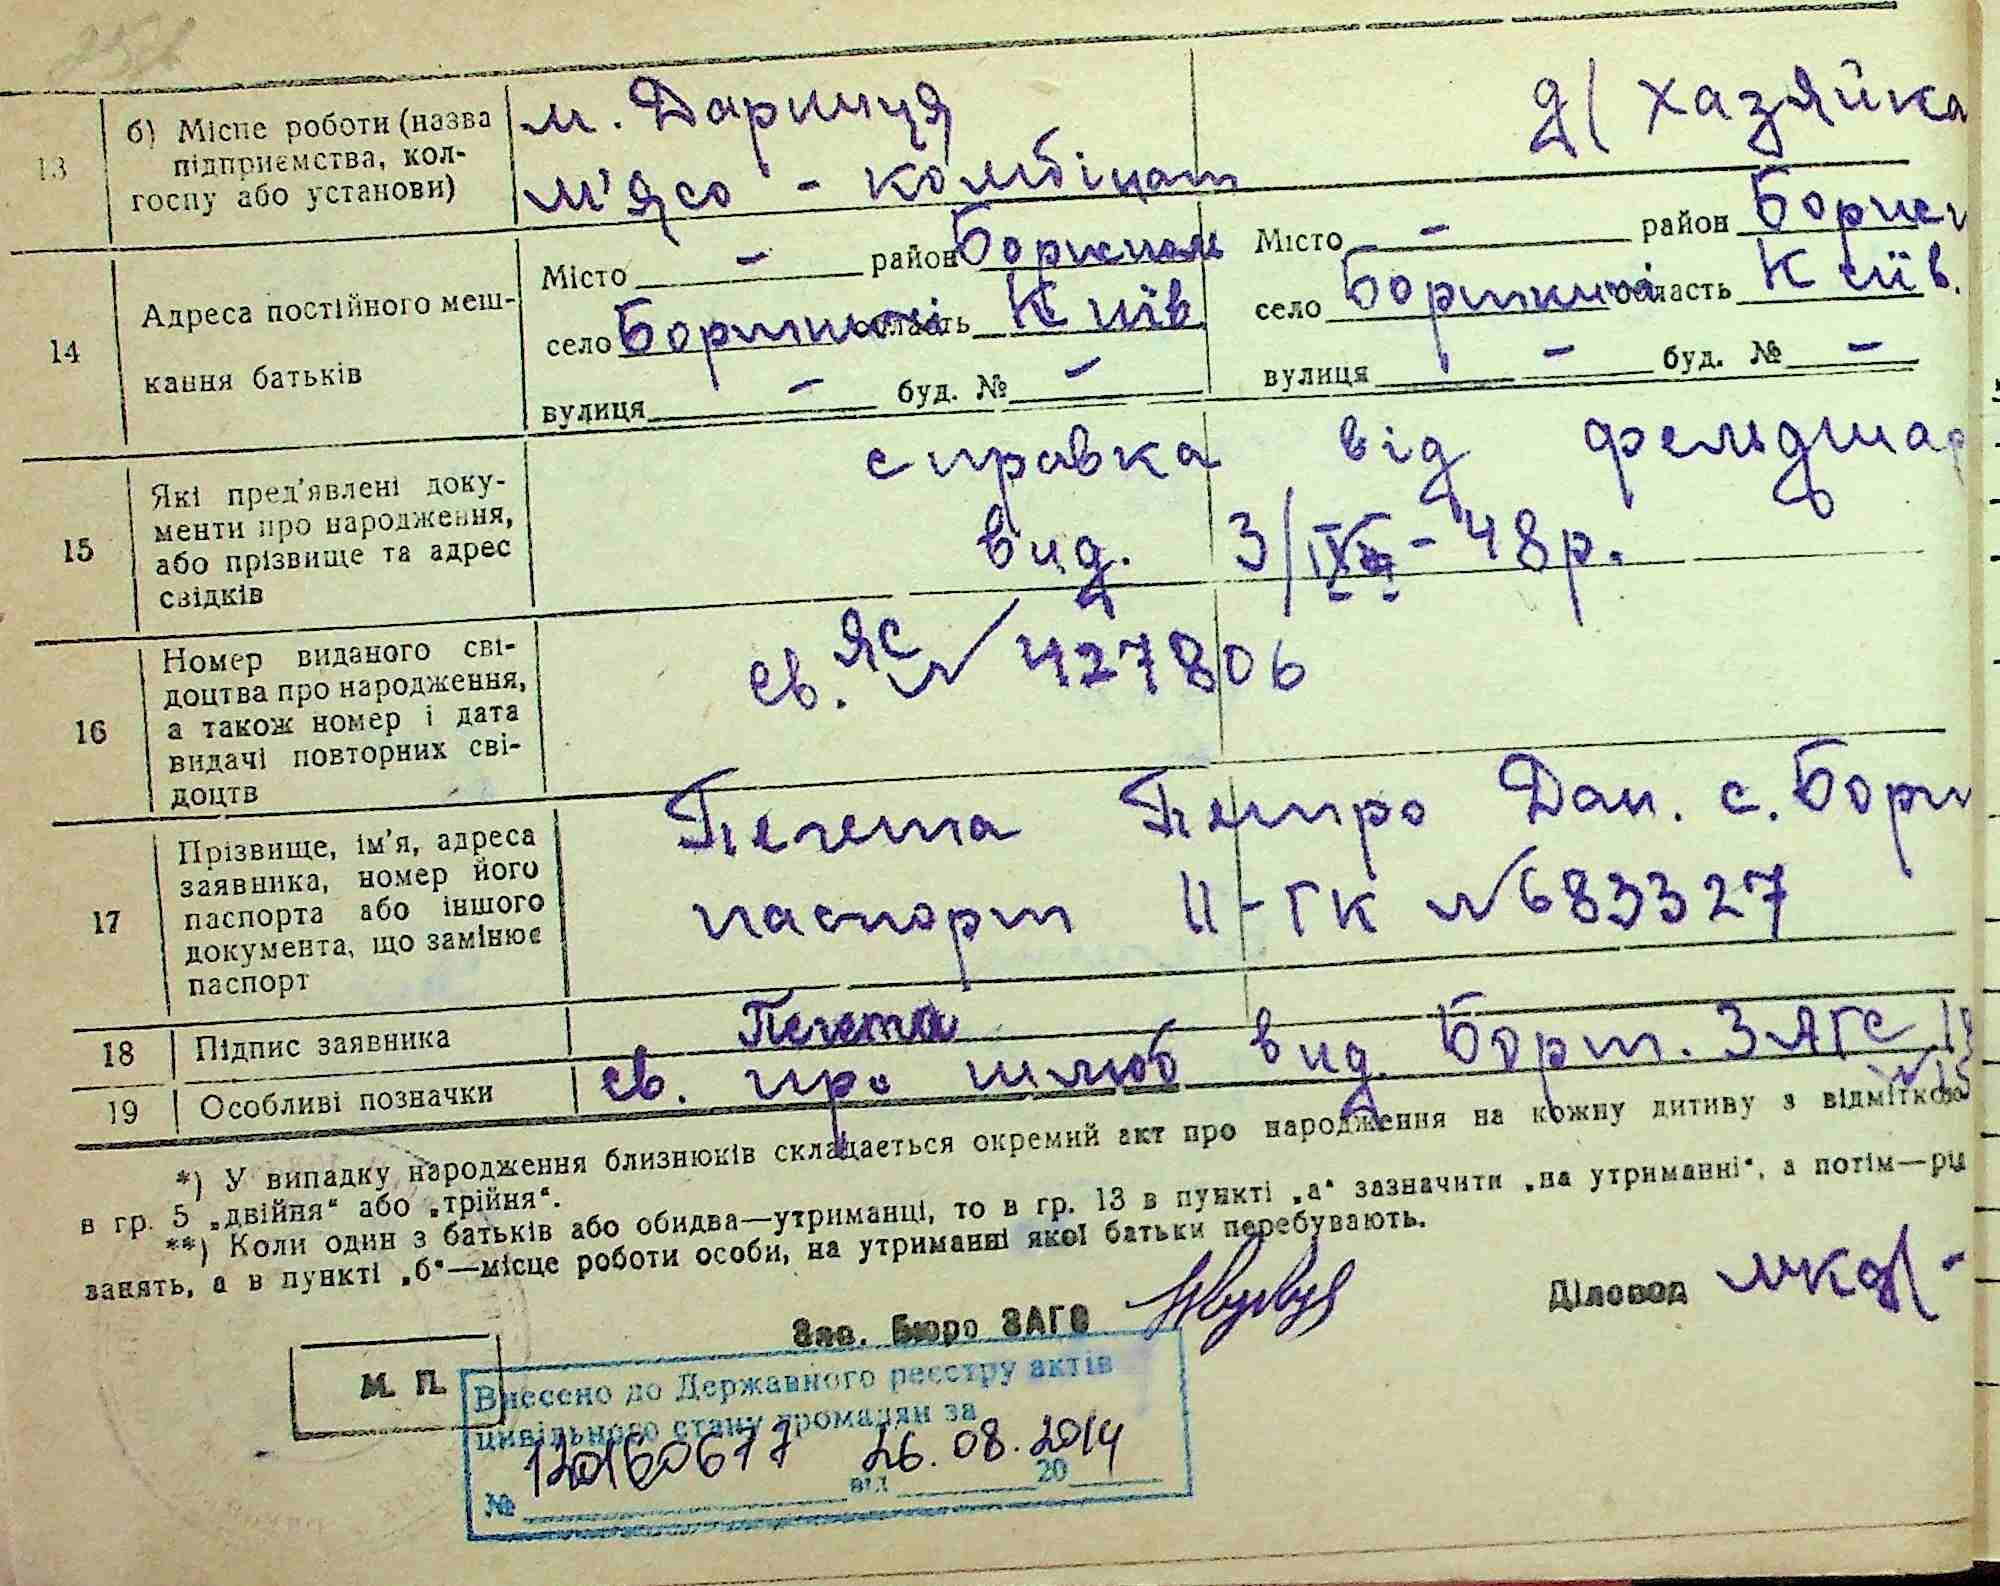 13
б) Місце роботи (назва
підприємства, кол-
госпу або установи)
м. Дарниця
м'ясо-комбінат
д/ хазяйка
14
Адреса постійного меш-
кання батьків
Місто - район Бориспол
село Бортничі область Київ
вулиця - буд. № -
Місто - район Борисп
село Бортничі область Київ.
вулиця - буд. № -
15
Які пред'явлені доку-
менти про народження,
або прізвище та адрес
свідків
справка від фельдшар
вид. 3/IX-48р.
16
Номер виданого сві-
доцтва про народження,
а також номер і дата
видачі повторних сві-
доцтв
св. ЯС № 427806
17
Прізвище, ім'я, адреса
заявника, номер його
паспорта або іншого
документа, що замінює
паспорт
Печета Петро Дан. с. Борт
паспорт II-ГК № 683327
18
Підпис заявника
Печета
19
Особливі позначки
св. про шлюб вид. Борт. ЗАГС
*) У випадку народження близнюків складається окремий акт про народження на кожну дитину з відміткою
в гр. 5 „двійня“ або „трійня“.
**) Коли один з батьків або обидва—утриманці, то в гр. 13 в пункті „а“ зазначити „на утриманні“, а потім—рід
занять, а в пункті „б“—місце роботи особи, на утриманні якої батьки перебувають.
Зав. Бюро ЗАГС
Діловод
М. П.
Внесено до Державного реєстру актів
цивільного стану громадян за
№ 120160677 від 26.08.2014
20